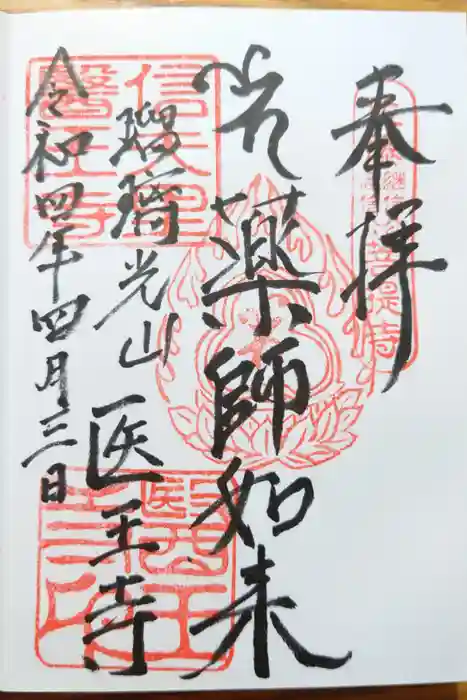 奉拝
菩提寺
光薬師如来
瑠璃光山 医王寺
醫王寺
令和四年四月三日